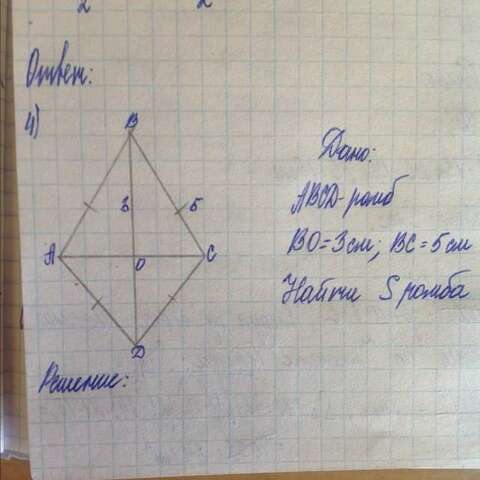 2 2
Ответ:
4)
B
3 5
A O C
D
Дано:
ABCD-ромб
BO=3см; BC=5см
Найти S ромба
Решение: